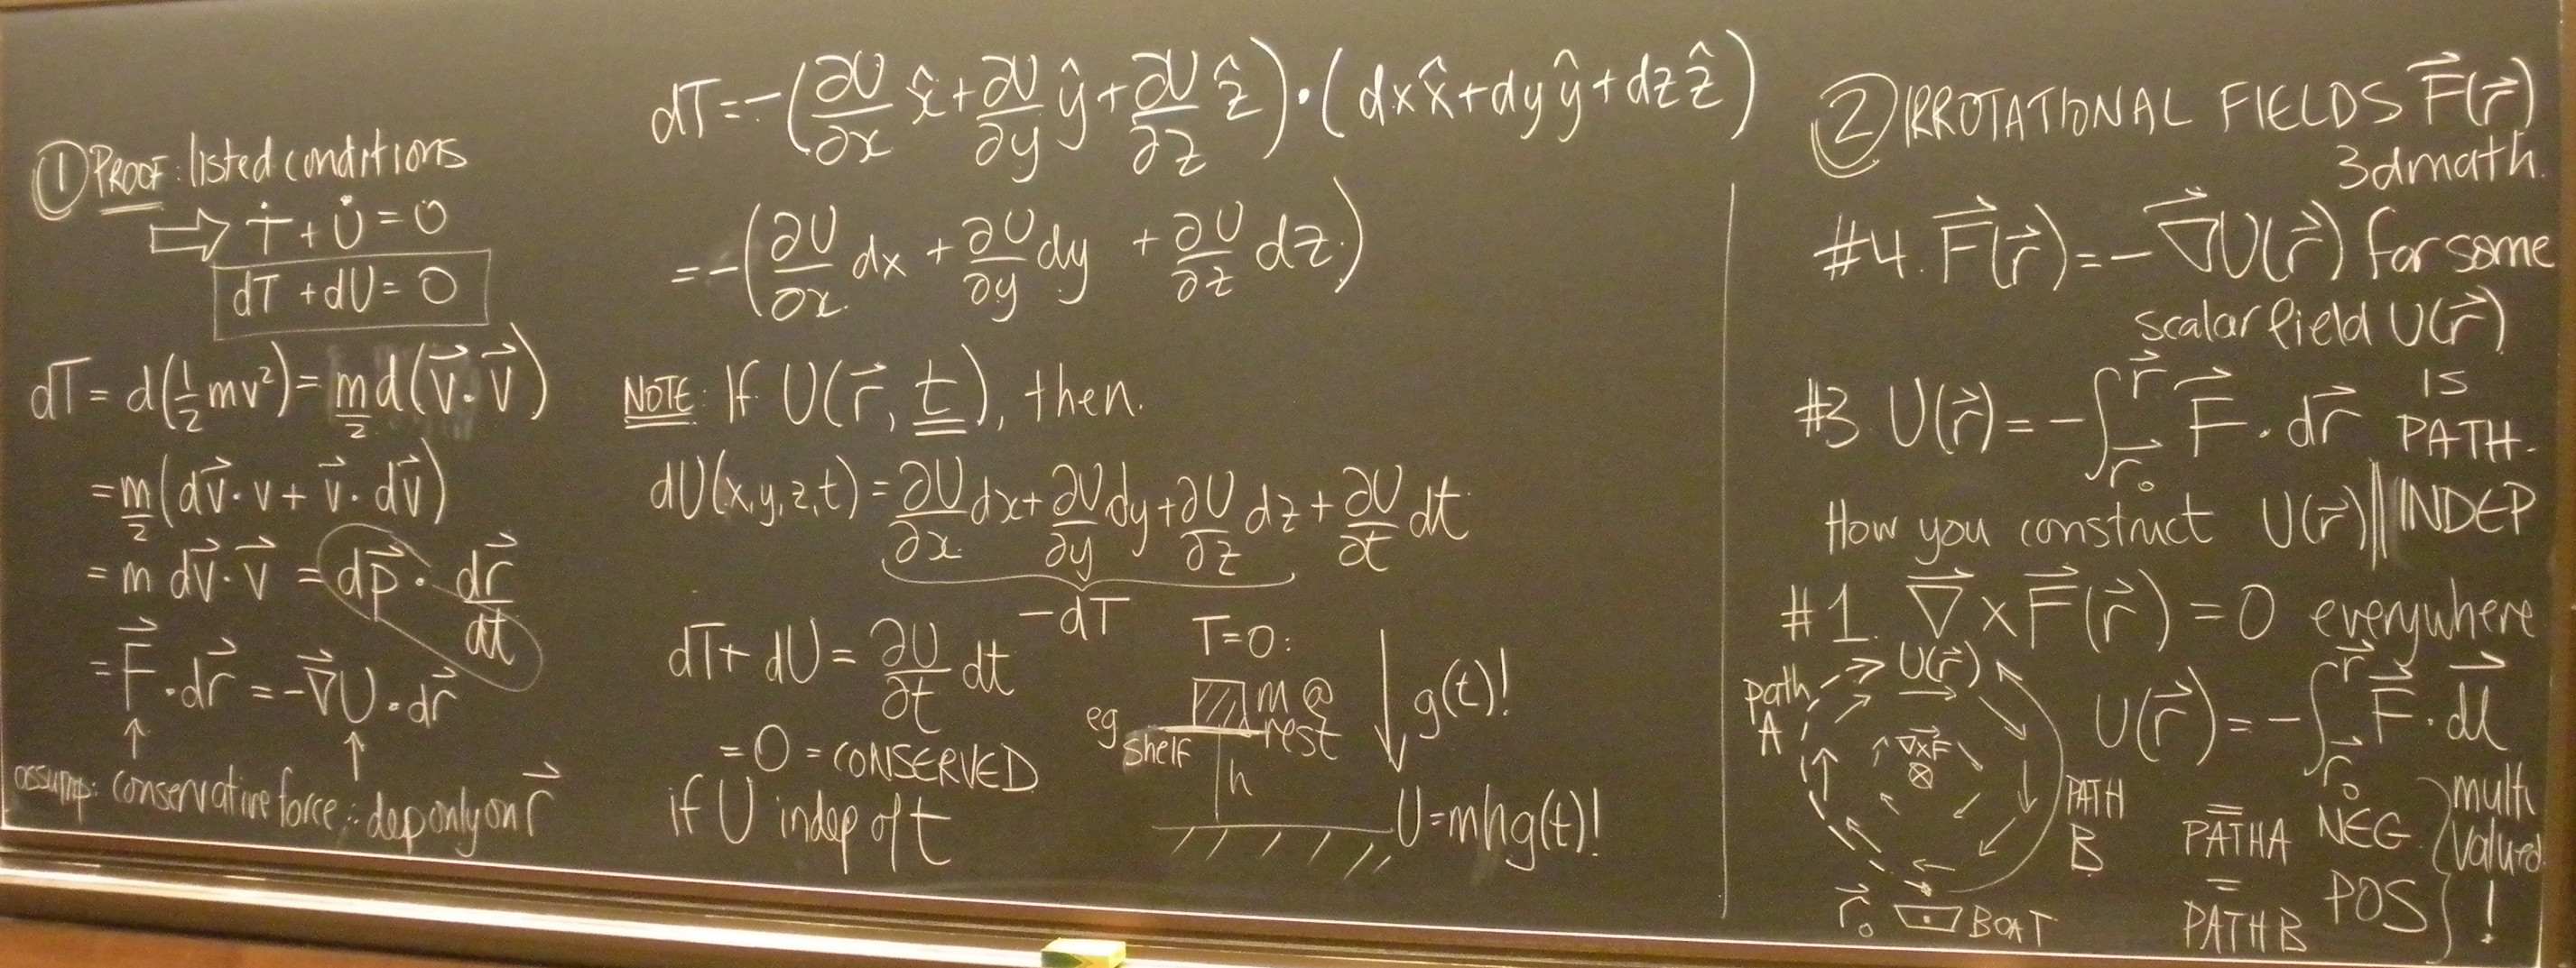 ① PROOF: listed conditions
⇒ Ṫ + U̇ = 0
dT + dU = 0
dT = d(½mv²) = m/2 d(v⃗·v⃗)
= m/2 (dv⃗·v + v⃗·dv⃗)
= m dv⃗·v⃗ = dp⃗ · dr⃗/dt
= F⃗·dr⃗ = -∇⃗U·dr⃗
↑ ↑
assump: conservative force ∴ dep only on r⃗
dT = -(∂U/∂x x̂ + ∂U/∂y ŷ + ∂U/∂z ẑ)·(dx x̂ + dy ŷ + dz ẑ)
= -(∂U/∂x dx + ∂U/∂y dy + ∂U/∂z dz)
NOTE: If U(r⃗, t), then.
dU(x,y,z,t) = ∂U/∂x dx + ∂U/∂y dy + ∂U/∂z dz + ∂U/∂t dt
-dT
dT + dU = ∂U/∂t dt
= 0 = CONSERVED
if U indep of t
T=0:
eg
m @ rest
shelf
h
g(t)!
U=mhg(t)!
② IRROTATIONAL FIELDS F⃗(r⃗)
3dmath.
#4. F⃗(r⃗) = -∇⃗U(r⃗) for some
scalar field U(r⃗)
#3 U(r⃗) = -∫_r⃗₀^r⃗ F⃗·dr⃗ IS
PATH-
INDEP
How you construct U(r⃗)
#1. ∇⃗×F⃗(r⃗) = 0 everywhere
U(r⃗)
path A
∇×F⃗
⊗
PATH B
r⃗₀
BOAT
U(r⃗) = -∫_r⃗₀^r⃗ F⃗·dl⃗
PATH A NEG
PATH B POS
multi
valued
!